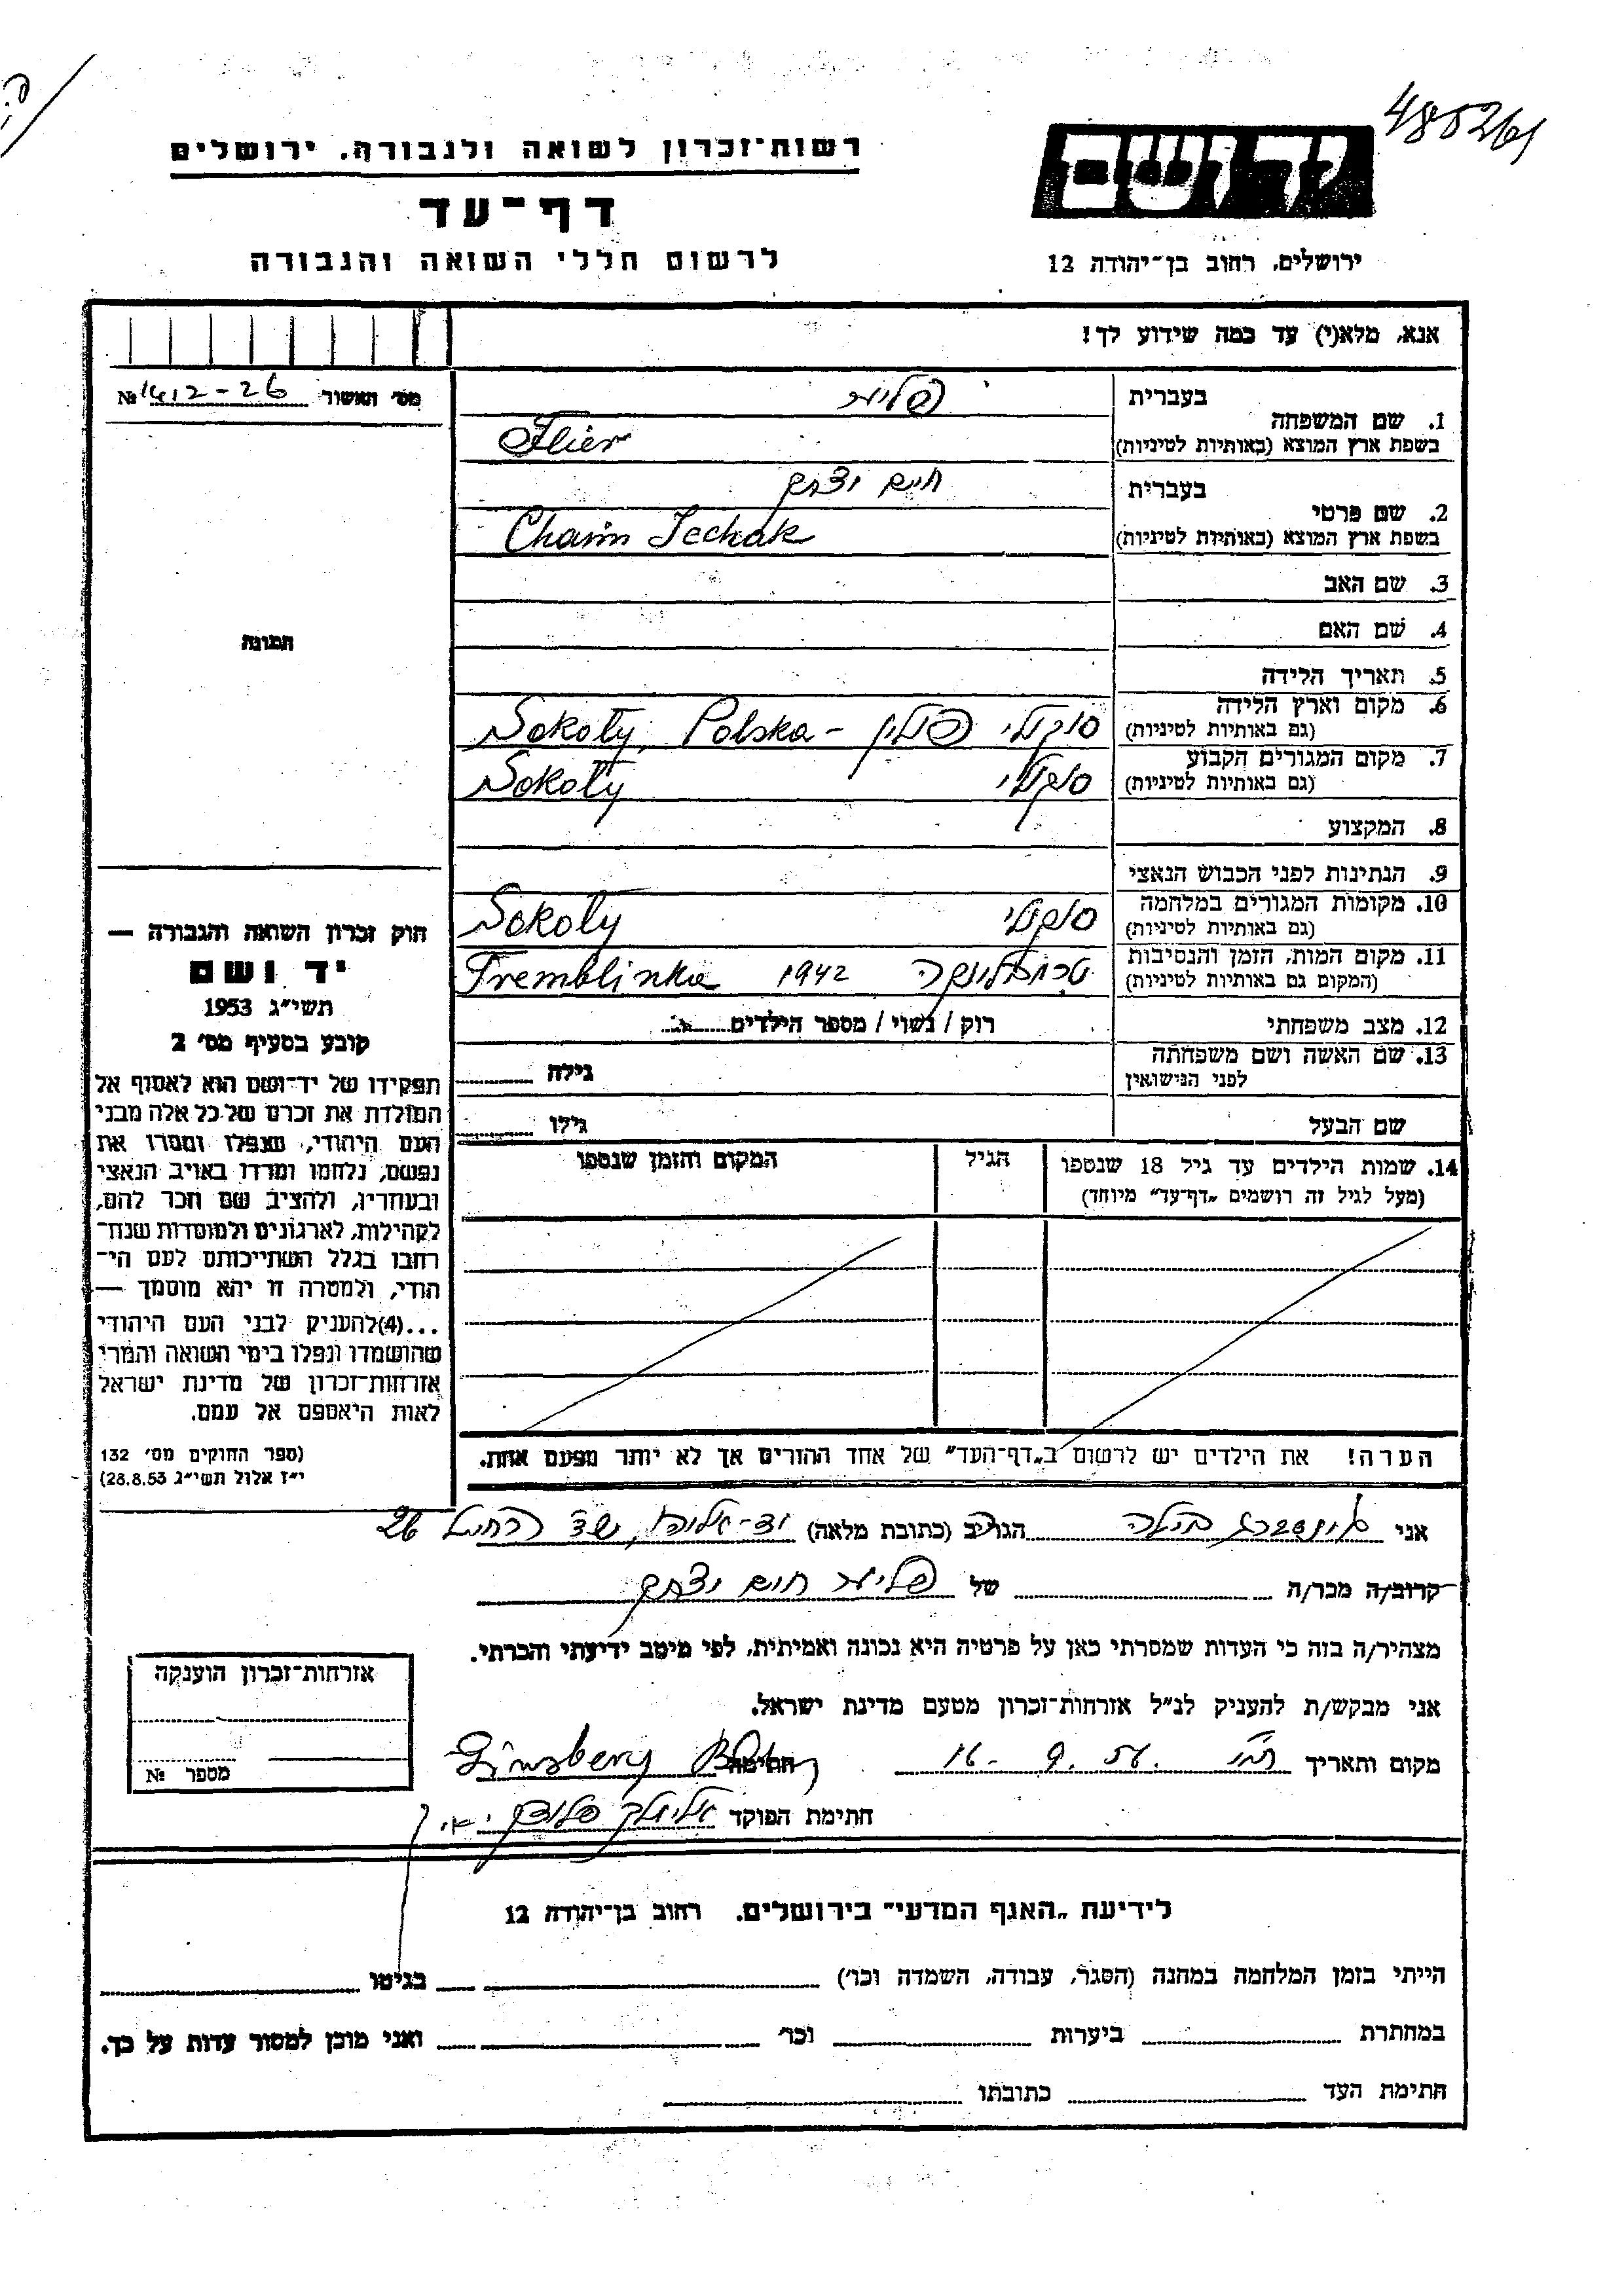 רשות־זכרון לשואה ולגבורה. ירושלים
דף־עד
לרשום חללי השואה והגבורה
ידושם
ירושלים, רחוב בן־יהודה 12
אנא, מלא(י) עד כמה שידוע לך!
מס׳ האשור № 1412-26
תמונה
בעברית
1. שם המשפחה
בשפת ארץ המוצא (באותיות לטיניות)
פליער
Flier
בעברית
2. שם פרטי
בשפת ארץ המוצא (באותיות לטיניות)
חיים יצחק
Chaim Icchak
3. שם האב
4. שם האם
5. תאריך הלידה
6. מקום וארץ הלידה
(גם באותיות לטיניות)
סוקולי פולין - Sokoły, Polska
7. מקום המגורים הקבוע
(גם באותיות לטיניות)
סוקולי Sokoły
8. המקצוע
9. הנתינות לפני הכבוש הנאצי
10. מקומות המגורים במלחמה
(גם באותיות לטיניות)
סוקולי Sokoły
11. מקום המות, הזמן והנסיבות
(המקום גם באותיות לטיניות)
טרמבלינקה 1942 Tremblinka
12. מצב משפחתי
רוק / נשוי / מספר הילדים
13. שם האשה ושם משפחתה
לפני הנישואין
גילה
שם הבעל
גילו
14. שמות הילדים עד גיל 18 שנספו
(מעל לגיל זה רושמים „דף־עד״ מיוחד)
הגיל
המקום והזמן שנספו
הערה! את הילדים יש לרשום ב„דף־העד״ של אחד ההורים אך לא יותר מפעם אחת.
חוק זכרון השואה והגבורה —
יד ושם
תשי״ג 1953
קובע בסעיף מס׳ 2
תפקידו של יד־ושם הוא לאסוף אל
המולדת את זכרם של כל אלה מבני
העם היהודי, שנפלו ומסרו את
נפשם, נלחמו ומרדו באויב הנאצי
ובעוזריו, ולהציב שם וזכר להם,
לקהילות, לארגונים ולמוסדות שנח־
רבו בגלל השתייכותם לעם הי־
הודי, ולמטרה זו יהא מוסמך —
...(4) להעניק לבני העם היהודי
שהושמדו ונפלו בימי השואה והמרי
אזרחות־זכרון של מדינת ישראל
לאות היאספם אל עמם.
(ספר החוקים מס׳ 132
י״ז אלול תשי״ג 28.8.53)
אני גינזברג בילה הגר/ה (כתובת מלאה) יד-אליהו, 26
קרוב/ה מכר/ה של פליער חיים יצחק
מצהיר/ה בזה כי העדות שמסרתי כאן על פרטיה היא נכונה ואמיתית, לפי מיטב ידיעתי והכרתי.
אני מבקש/ת להעניק לנ״ל אזרחות־זכרון מטעם מדינת ישראל.
מקום ותאריך 16. 9. 56 חתימה Ginsberg
חתימת הפוקד
אזרחות־זכרון הוענקה
מספר №
לידיעת „האגף המדעי״ בירושלים. רחוב בן־יהודה 12
הייתי בזמן המלחמה במחנה (הסגר, עבודה, השמדה וכו׳) בגיטו
במחתרת ביערות וכו׳ ואני מוכן למסור עדות על כך.
חתימת העד כתובתו